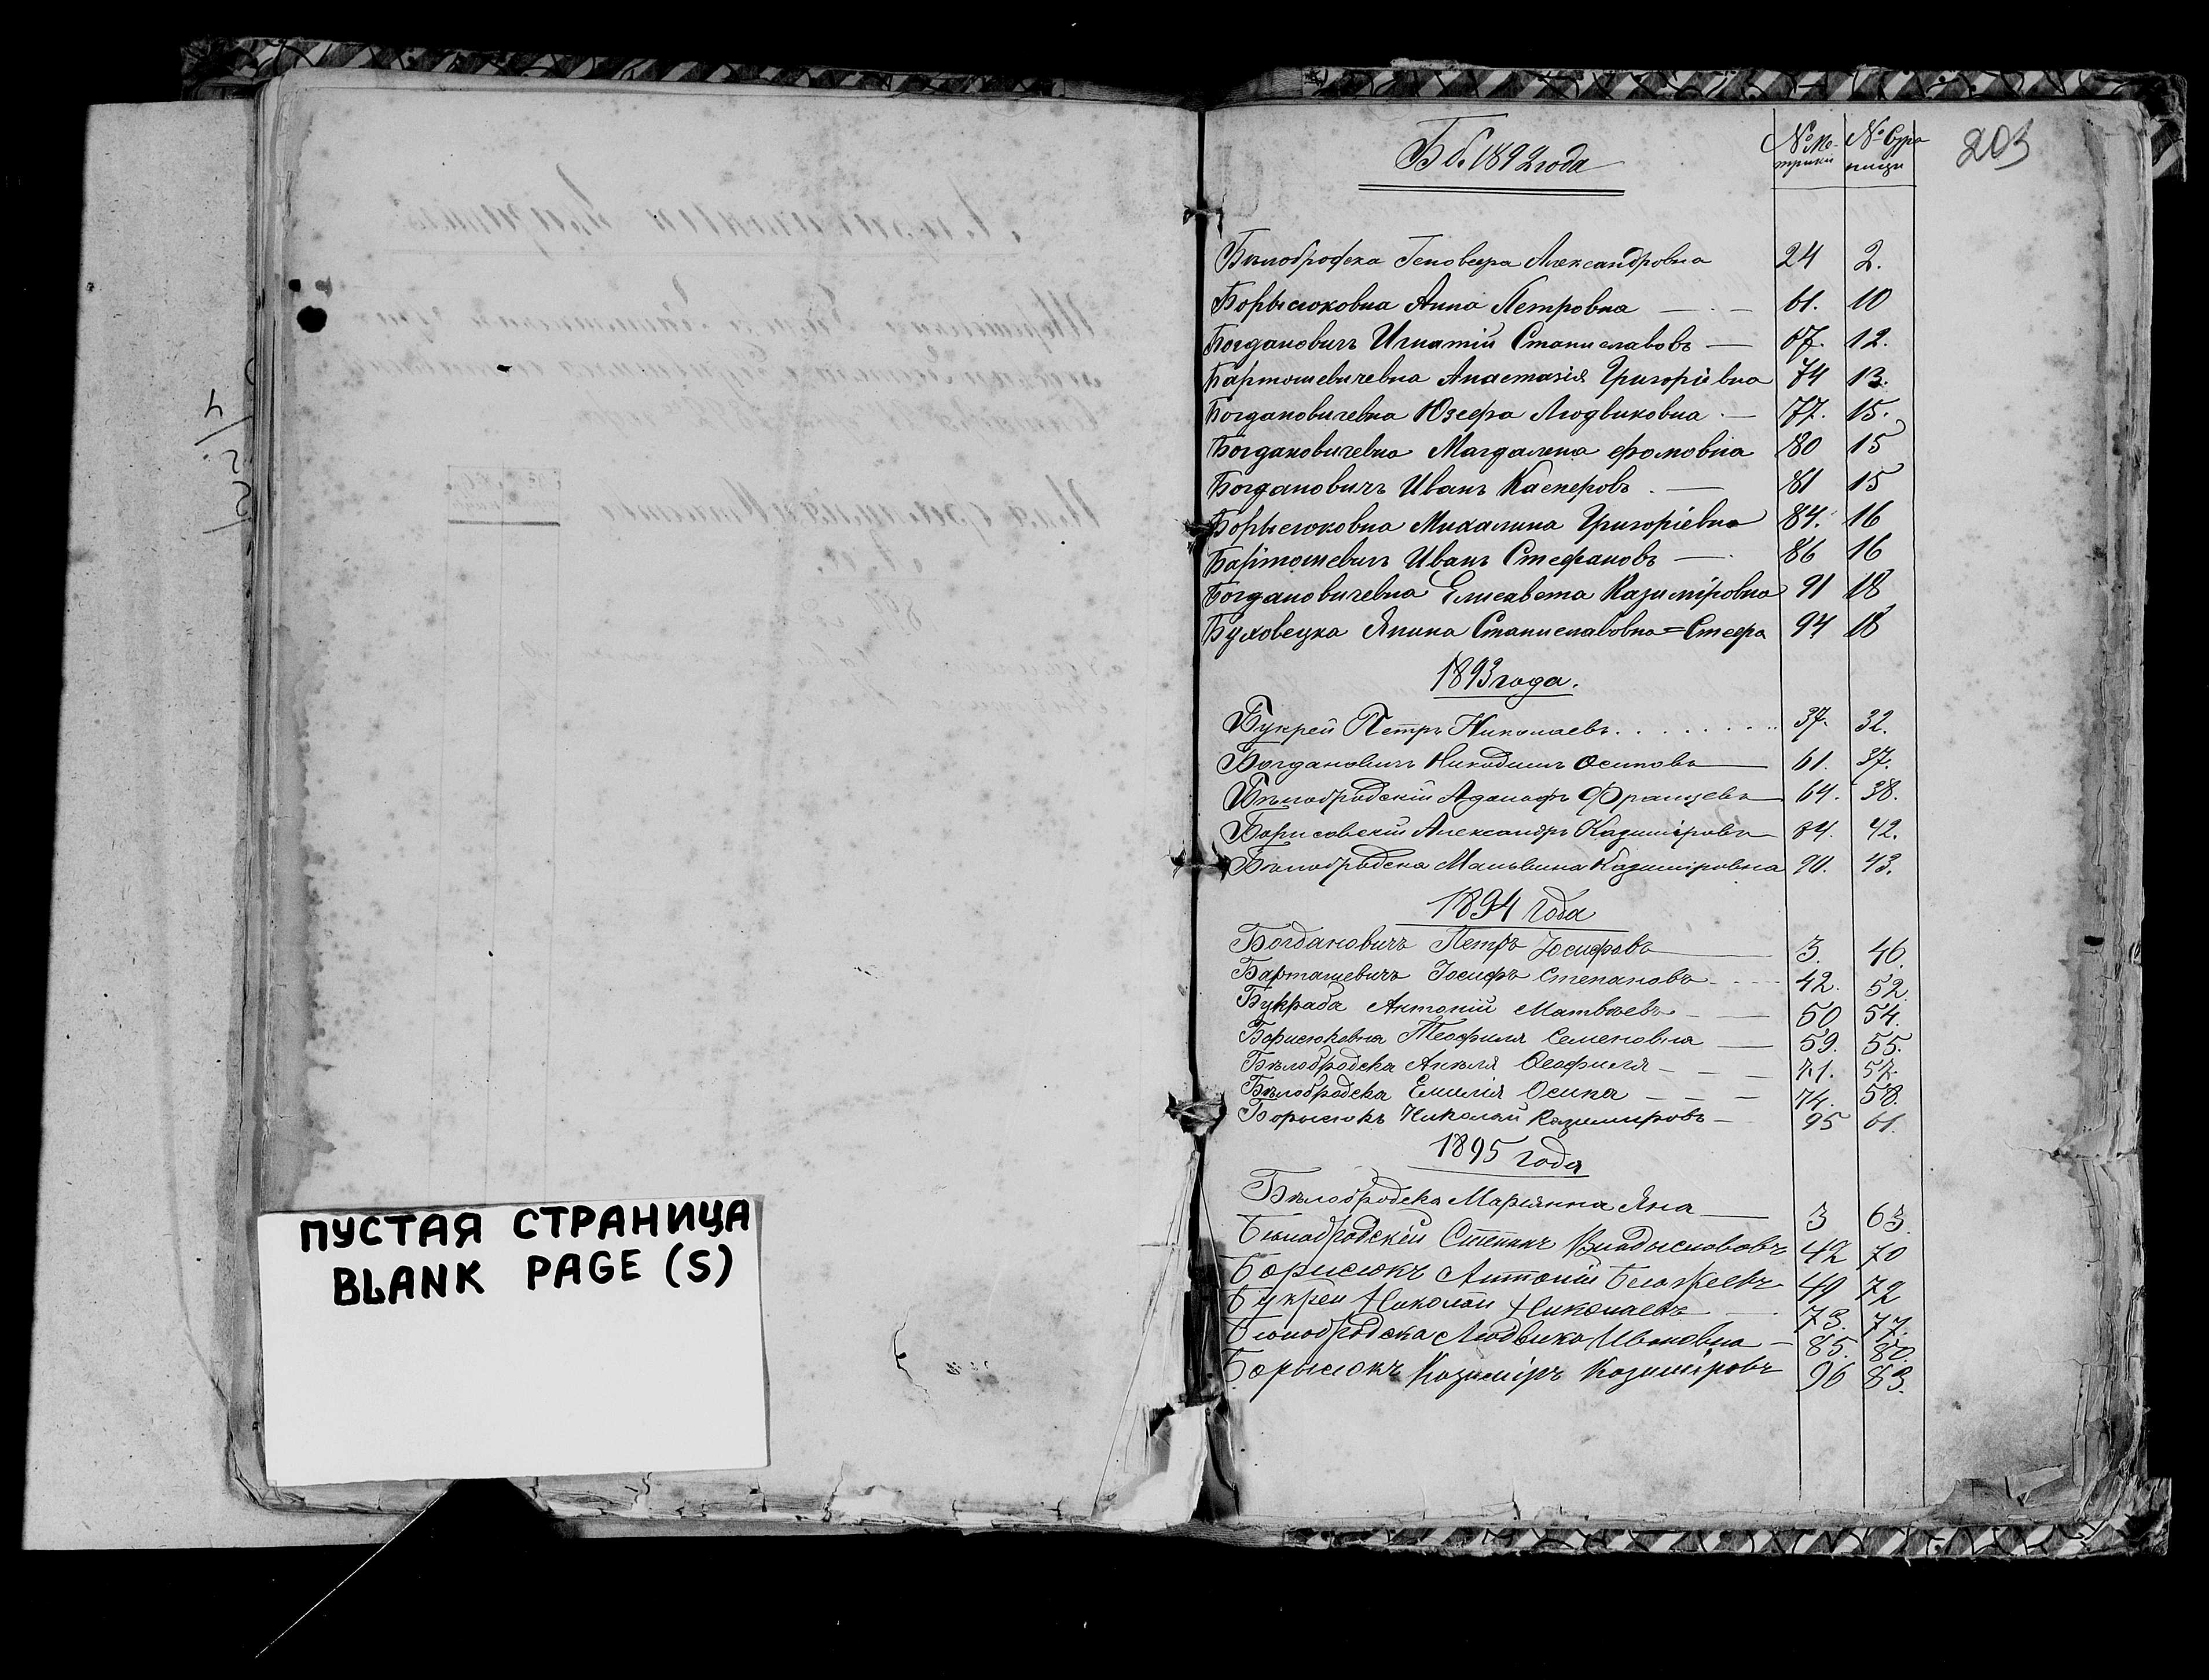 ПУСТАЯ СТРАНИЦА
BLANK PAGE (S)
203
Бб. 1892 года
№ Метрики № Страницы
Бѣлобродска Геновефа Александровна 24 2.
Борысюковна Анна Петровна 61. 10
Богдановичъ Игнатій Станиславовъ 67. 12.
Бартошевичевна Анастазія Григоріевна 74 13.
Богдановичевна Юзефа Людвиковна 77. 15.
Богдановичевна Магдалена Фомовна 80 15
Богдановичъ Иванъ Касперовъ 81 15
Борысюковна Михалина Григоріевна 84. 16
Бартошевичъ Иванъ Стефановъ 86 16
Богдановичевна Елисавета Казиміровна 91 18
Буховецка Янина Станиславовна=Стефа 94 18
1893 года.
Букрей Петръ Николаевъ 37. 32.
Богдановичъ Никодимъ Осиповъ 61. 37.
Бѣлобродскій Адольфъ Францевъ 64. 38.
Борисовскій Александръ Казиміровъ 84. 42.
Бѣлобродска Мальвина Казиміровна 90. 43.
1894 года
Богдановичъ Петръ Іосифовъ 3. 46.
Барташевичъ Іосифъ Степановъ 42. 52.
Букраба Антоній Матвѣевъ 50 54.
Борисюковна Теофиля Семеновна 59. 55.
Бѣлобродска Анѣля Теофиля 71. 57.
Бѣлобродска Емилія Осипа 74. 58.
Борысюкъ Николай Казимировъ 95 61.
1895 года
Бѣлобродска Маріянна Яна 3 63.
Бѣлобродскій Степанъ Владыслововъ 42 70
Борисюкъ Антоній Блажеевъ 49 72
Букрей Николай Николаевъ 73. 77.
Бѣлобродска Людвика Ивановна 85. 80.
Борысюкъ Казиміръ Казиміровъ 96 83.